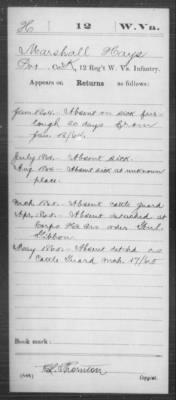 H 12 W. Va.
Marshall Hays
Pvt., Co. K, 12 Reg't W. Va. Infantry.
Appears on Returns as follows:
Jan. 1864.- Absent on sick fur-
lough 20 days from
Jan. 12/64.
July 1864.- Absent sick.
Aug. 1864.- Absent sick at unknown
place.
Mch. 1865.- Absent cattle guard
Apr. 1865.- Absent detached at
Corps Hd Qrs order Genl.
Gibbon.
May 1865.- Absent det'chd as
Cattle Guard Mch 17/65
Book mark:
Thornton
(546) Copyist.